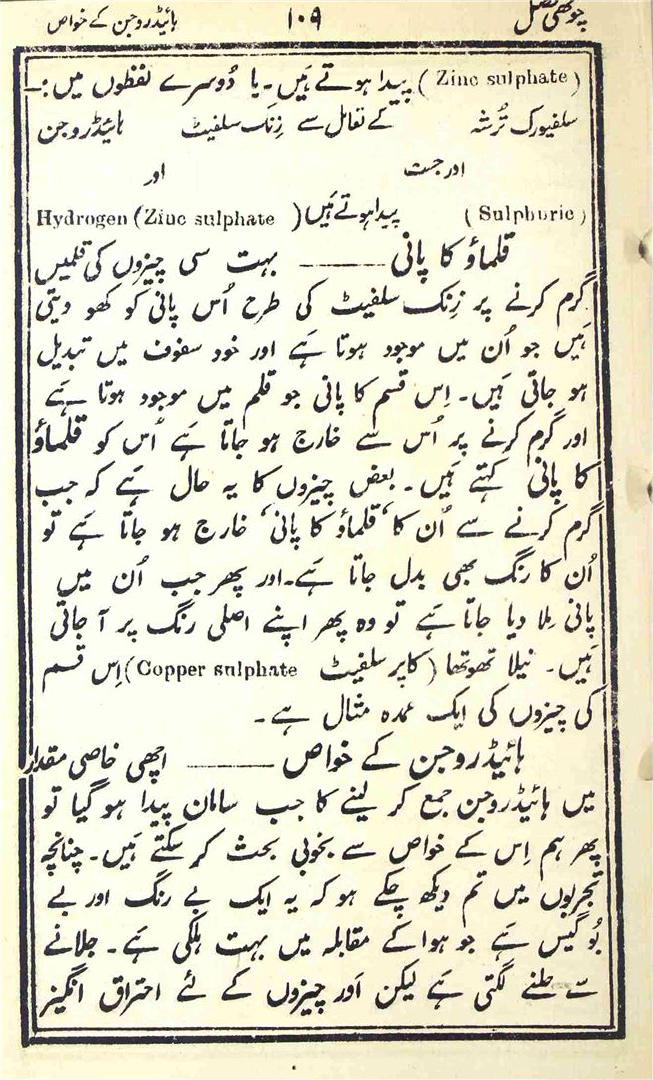 چوتھی فصل ۱۰۹ ہائیڈروجن کے خواص
(Zinc sulphate) پیدا ہوتے ہَیں۔ یا دُوسرے لفظوں میں :—
سلفیورک تُرشہ کے تعامل سے زِنک سلفیٹ ہائیڈروجن
اور جست اور
(Sulphuric) پیدا ہوتے ہَیں (Zinc sulphate) Hydrogen
قلماؤ کا پانی —— بہت سی چیزوں کی قلمیں
گرم کرنے پر زِنک سلفیٹ کی طرح اُس پانی کو کھو دیتی
ہَیں جو اُن میں موجود ہوتا ہَے اور خود سفوف میں تبدیل
ہو جاتی ہَیں۔ اِس قسم کا پانی جو قلم میں موجود ہوتا ہَے
اور گرم کرنے پر اُس سے خارج ہو جاتا ہَے اُس کو قلماؤ
کا پانی کہتے ہَیں۔ بعض چیزوں کا یہ حال ہَے کہ جب
گرم کرنے سے اُن کا ’قلماؤ کا پانی‘ خارج ہو جاتا ہَے تو
اُن کا رنگ بھی بدل جاتا ہَے۔ اور پھر جب اُن میں
پانی مِلا دیا جاتا ہَے تو وہ پھر اپنے اصلی رنگ پر آ جاتی
ہَیں۔ نیلا تھوتھا (کاپر سلفیٹ Copper sulphate) اِس قسم
کی چیزوں کی ایک عمدہ مثال ہَے۔
ہائیڈروجن کے خواص —— اچھی خاصی مقدار
میں ہائیڈروجن جمع کر لینے کا جب سامان پیدا ہو گیا تو
پھر ہم اِس کے خواص سے بخوبی بحث کر سکتے ہَیں۔ چنانچہ
تجربوں میں تم دیکھ چکے ہو کہ یہ ایک بے رنگ اور بے
بُو گیس ہَے جو ہوا کے مقابلہ میں بہت ہلکی ہَے۔ جلانے
سے جلنے لگتی ہَے لیکن اَور چیزوں کے لئے احتراق انگیز